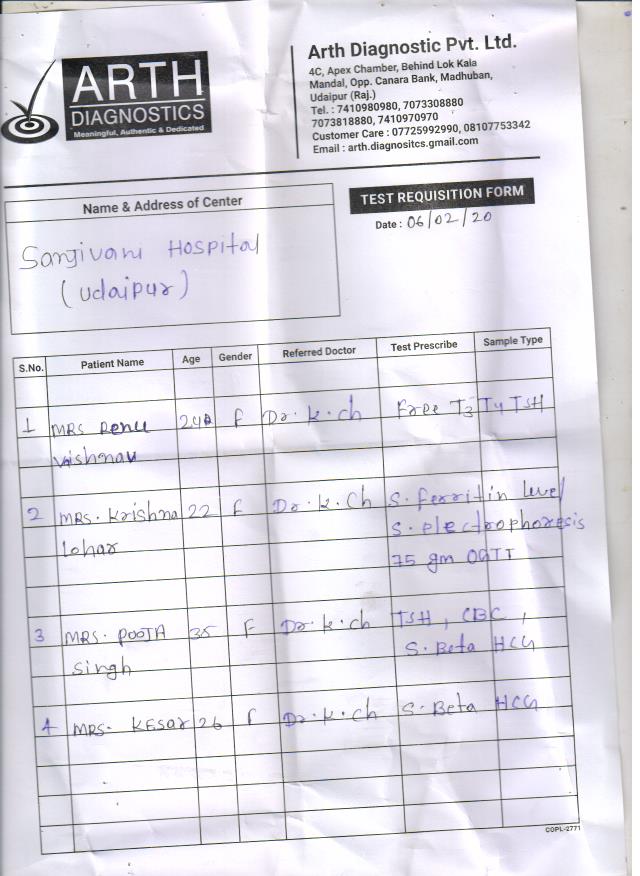 ARTH
DIAGNOSTICS
Meaningful, Authentic & Dedicated
Arth Diagnostic Pvt. Ltd.
4C, Apex Chamber, Behind Lok Kala
Mandal, Opp. Canara Bank, Madhuban,
Udaipur (Raj.)
Tel. : 7410980980, 7073308880
7073818880, 7410970970
Customer Care : 07725992990, 08107753342
Email : arth.diagnositcs.gmail.com
Name & Address of Center
Sanjivani Hospital
(Udaipur)
TEST REQUISITION FORM
Date : 06/02/20
S.No. Patient Name Age Gender Referred Doctor Test Prescribe Sample Type
1 MRS Renu 24 F Dr. K. ch Free T3 T4 TSH
Vaishnav
2 MRS. Krishna 22 F Dr. K. Ch S. ferritin level
Lohar S. electrophoresis
75 gm OGTT
3 MRS. POOJA 35 F Dr. K. ch TSH, CBC,
Singh S. Beta HCG
4 MRS. KESAR 26 F Dr. K. ch S. Beta HCG
COPL-2771